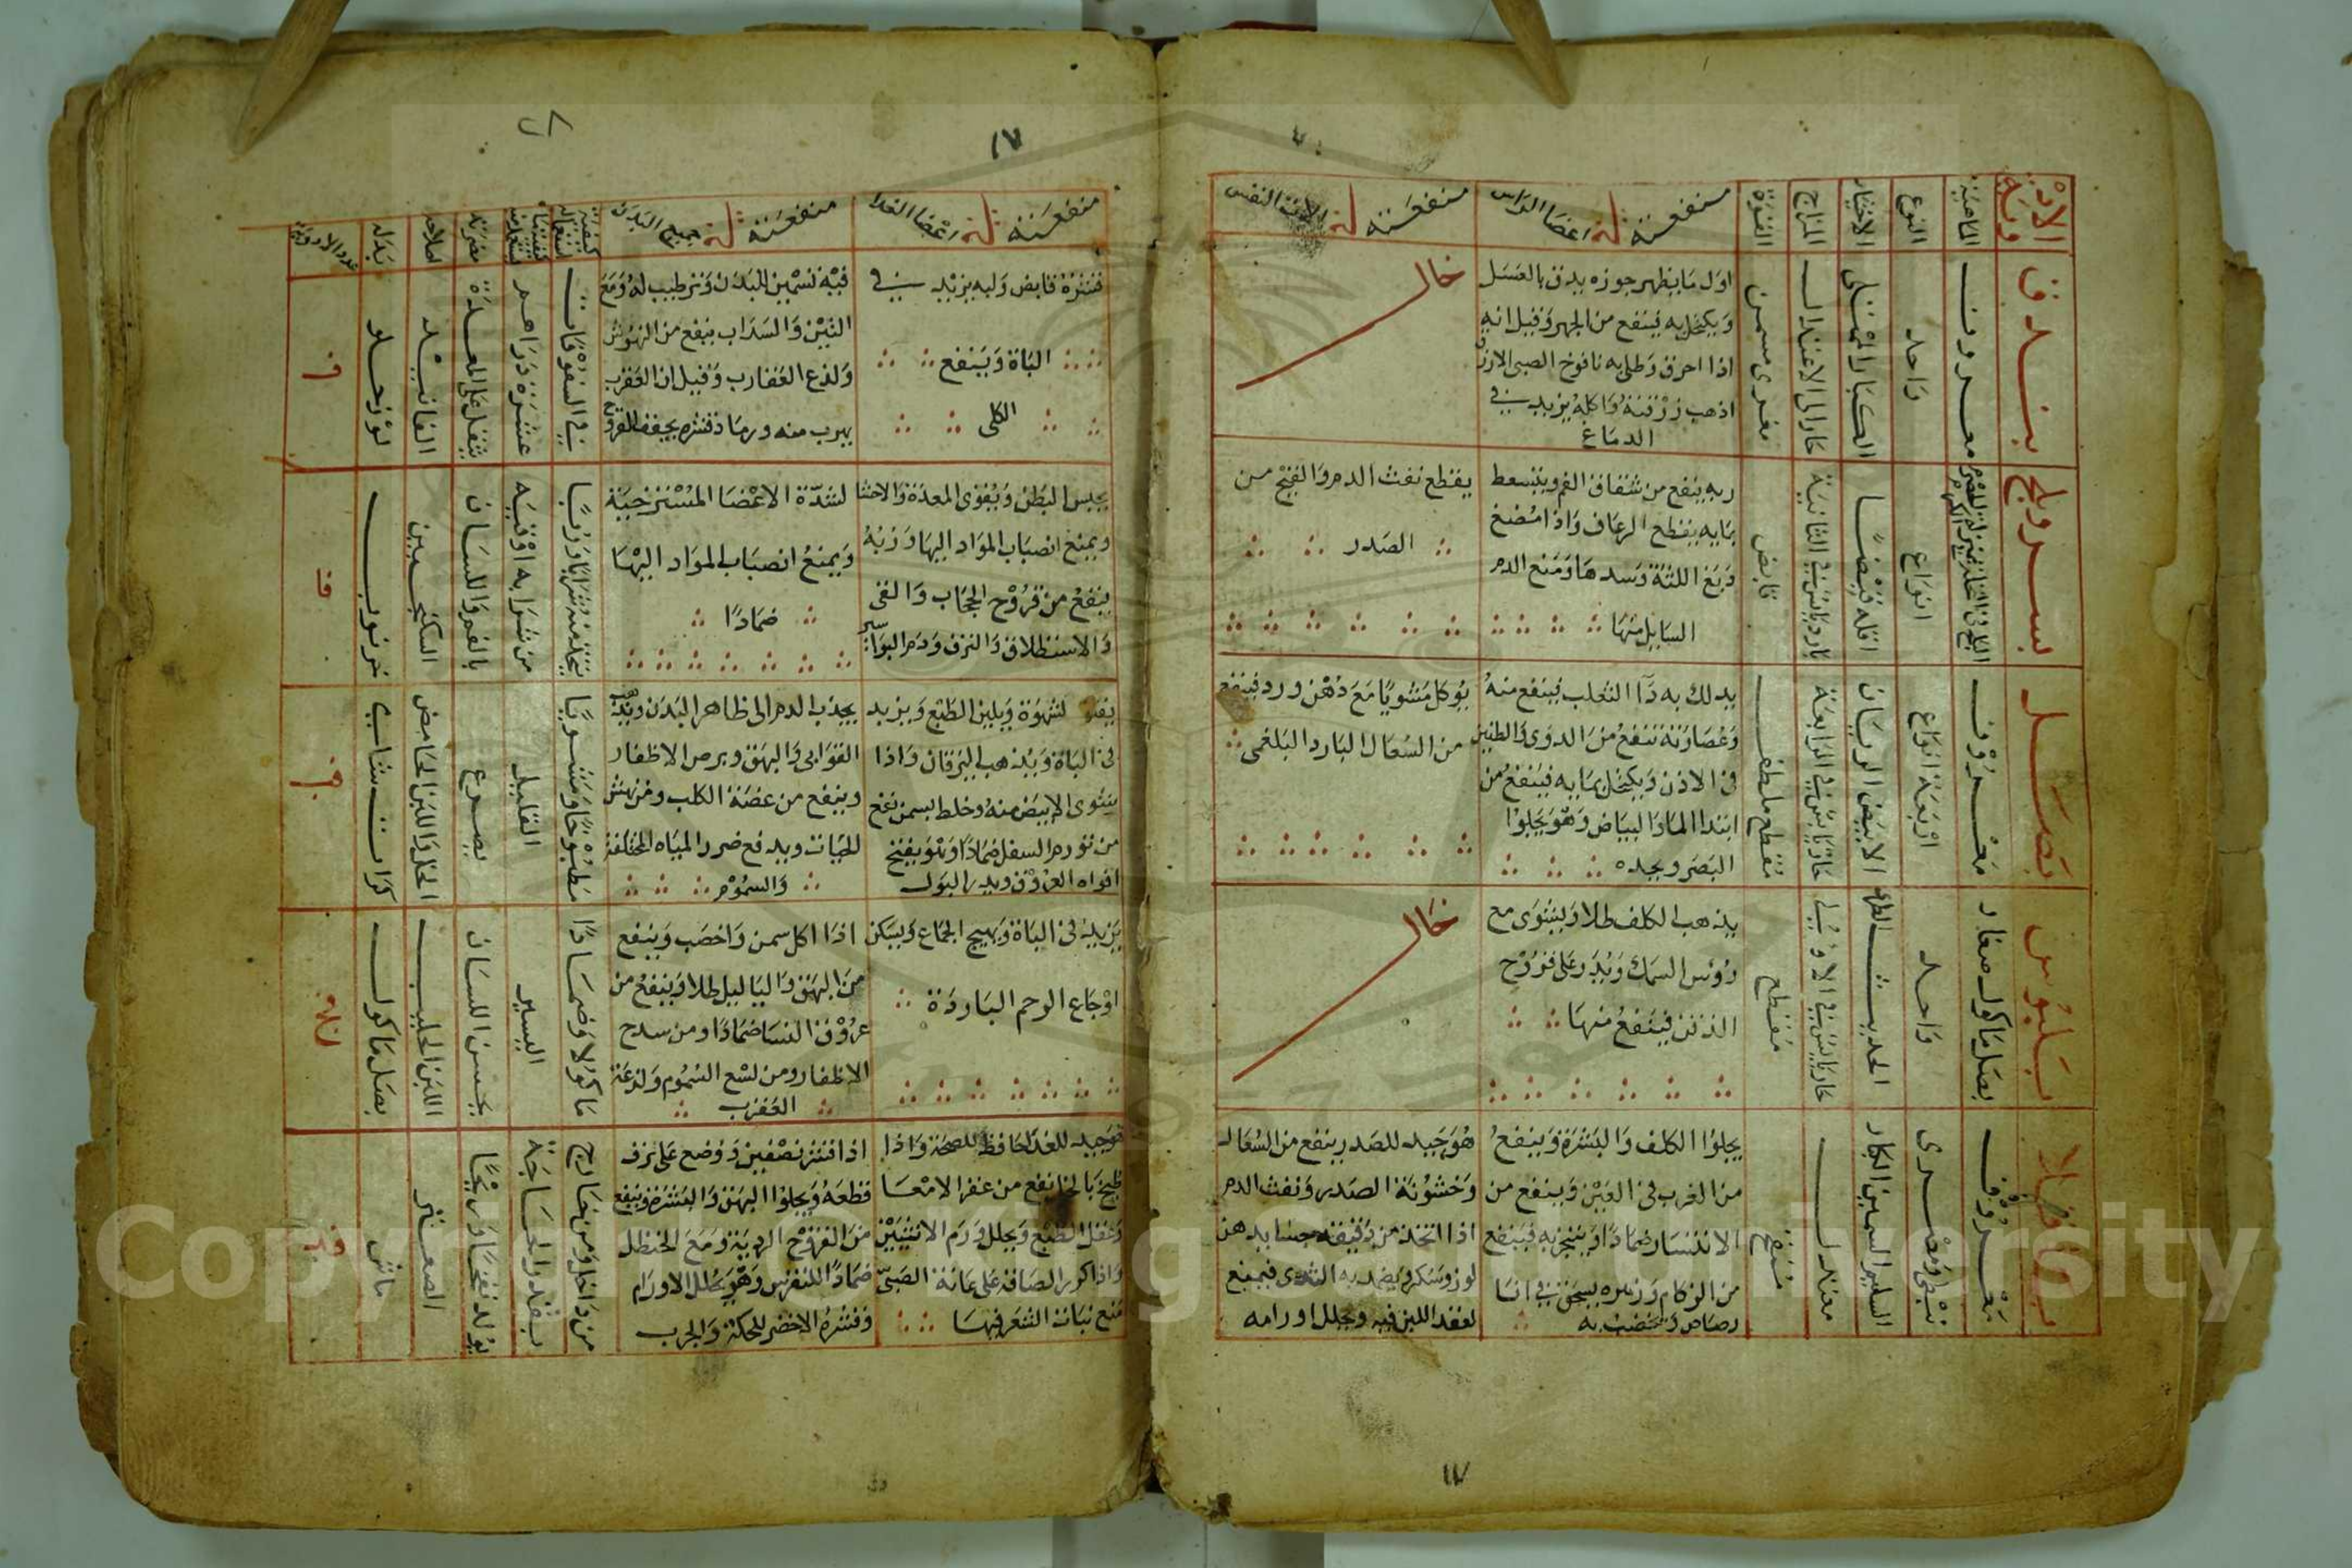 الادوية
الماهية
النوع
الاختيار
المزاج
القوة
منفعته في اعضا الراس
منفعته في الات النفس
بندق
معروف
واحد
الكبار الممتلى
حار الى الاعتدال
مغرى مسمن
اول ما يظهر جوزه يدق بالعسل
ويكتحل به فينفع من الجهر وقيل انه
اذا احرق وطلى به نافوخ الصبى الازرق
اذهب زرقته واكله يزيد في
الدماغ
خال
بسر وبلح
انواع
اقله قبضا
بارد يابس في الثانية
قابض
ربه ينفع من شقاق الفم ويتسعط
بمايه يقطع الرعاف واذا مضغ
دبغ اللثة وسدها ومنع الدم
السايل منها
يقطع نفث الدم والقيح من
الصدر
بصل
معروف
اربعة انواع
الابيض الريان
حار يابس في الرابعة
مقطع ملطف
يدلك به دآ الثعلب فينفع منه
وعصارته تنفع من الدوى والطنين
في الاذن ويكتحل بمايه فينفع من
ابتدا الما والبياض وهو يجلوا
البصر ويحده
يوكل مشويا مع دهن ورد فينفع
من السعال البارد البلغمى
بلبوس
بصل ماكول صغار
واحد
الحديث الطرى
حار يابس في الاولى
مقطع
يذهب الكلف طلا ويشوى مع
روس السمك ويذر على قروح
الذقن فينفع منها
خال
باقلا
معروف
نبطى ومصرى
السليم السمين الكبار
معتدل
منفخ
يجلوا الكلف والبشرة وينفع
من الغرب في العين وينفع من
الانتشار ضمادا ويتبخر به فينفع
من الزكام وزهره يسحق في انا
رصاص وتخضب به
هو جيد للصدر ينفع من السعال
وخشونة الصدر ونفث الدم
اذا اتخذ من دقيقه حسا بدهن
لوز وسكر ويضمد به الثدى فيمنع
لعقد اللبن فيه ويحلل اورامه
١٧
١٧
منفعته في اعضا الغدا
منفعته في جميع البدن
كيفية استعماله
مضرته
اصلاحه
بدله
عدد الادوية
قشره قابض ولبه يزيد في
الباة وينفع
الكلى
فيه تسمين للبدن وترطيب له ومع
التين والسداب ينفع من النهوش
ولذع العقارب وقيل ان العقرب
يهرب منه ورماد قشره يجفف القروح
في السفوفات
عشرة دراهم
يثقل على المعدة
الفانيد
لوز حلو
يحبس البطن ويقوى المعدة والاحشا
ويمنع انصباب المواد اليها وربه
ينفع من قروح الحجاب والقى
والاستطلاق والنزف ودم البواسير
لشدة الاعضا المسترخية
ويمنع انصباب المواد اليها
ضمادا
يتخذ منه شرابا وربا
من شرابه اوقيه
بالفم واللسان
السكنجبين
خرنوب
لشهوة ويلين الطبع ويزيد
في الباة ويذهب اليرقان واذا
شوى الابيض منه وخلط بسمن نفع
من تورم السفل ضمادا وهو يفتح
افواه العروق ويدر البول
يجذب الدم الى ظاهر البدن
القوابى والبهق وبرص الاظفار
وينفع من عضة الكلب ومن نهش
الحيات ويدفع ضرر المياه المختلفة
والسموم
مطبوخا ومشويا
القليل
يصدع
الخل واللبن الحامض
كراث شامى
يزيد في الباة ويهيج الجماع ويسكن
اوجاع الرحم الباردة
اذا اكل سمن واخصب وينفع
من البهق والثاليل طلا وينفع من
عروق النسا ضمادا ومن سدح
الاظفار ومن لسع السموم ولذعة
العقرب
ماكولا وضمادا
اليسير
يخشن اللسان
اللبن الحليب
بصل ماكول
هو جيد للغدا حافظ للصحة واذا
طبخ بالخل نفع من عقر الامعا
وعقل الطبع ويحلل ورم الانثيين
واذا كرر الصاقه على عانة الصبى
منع نبات الشعر فيها
اذا قشر نصفين ووضع على نزف
قطعه ويجلوا البهق والبشرة وينفع
من القروح الردية ومع الحنظل
ضمادا للنقرس وهو يحلل الاورام
وقشره الاخضر للحكة والجرب
من داخل ومن خارج
بقدر الحاجة
يولد نفخا وريحا
الصعتر
ماش
Copyright © King Saud University